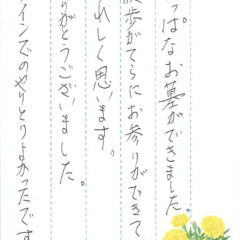 っぱなお墓ができました。
散歩がてらにお参りができて
れしく思います。
りがとうございました。
インでのやりとりよかったです